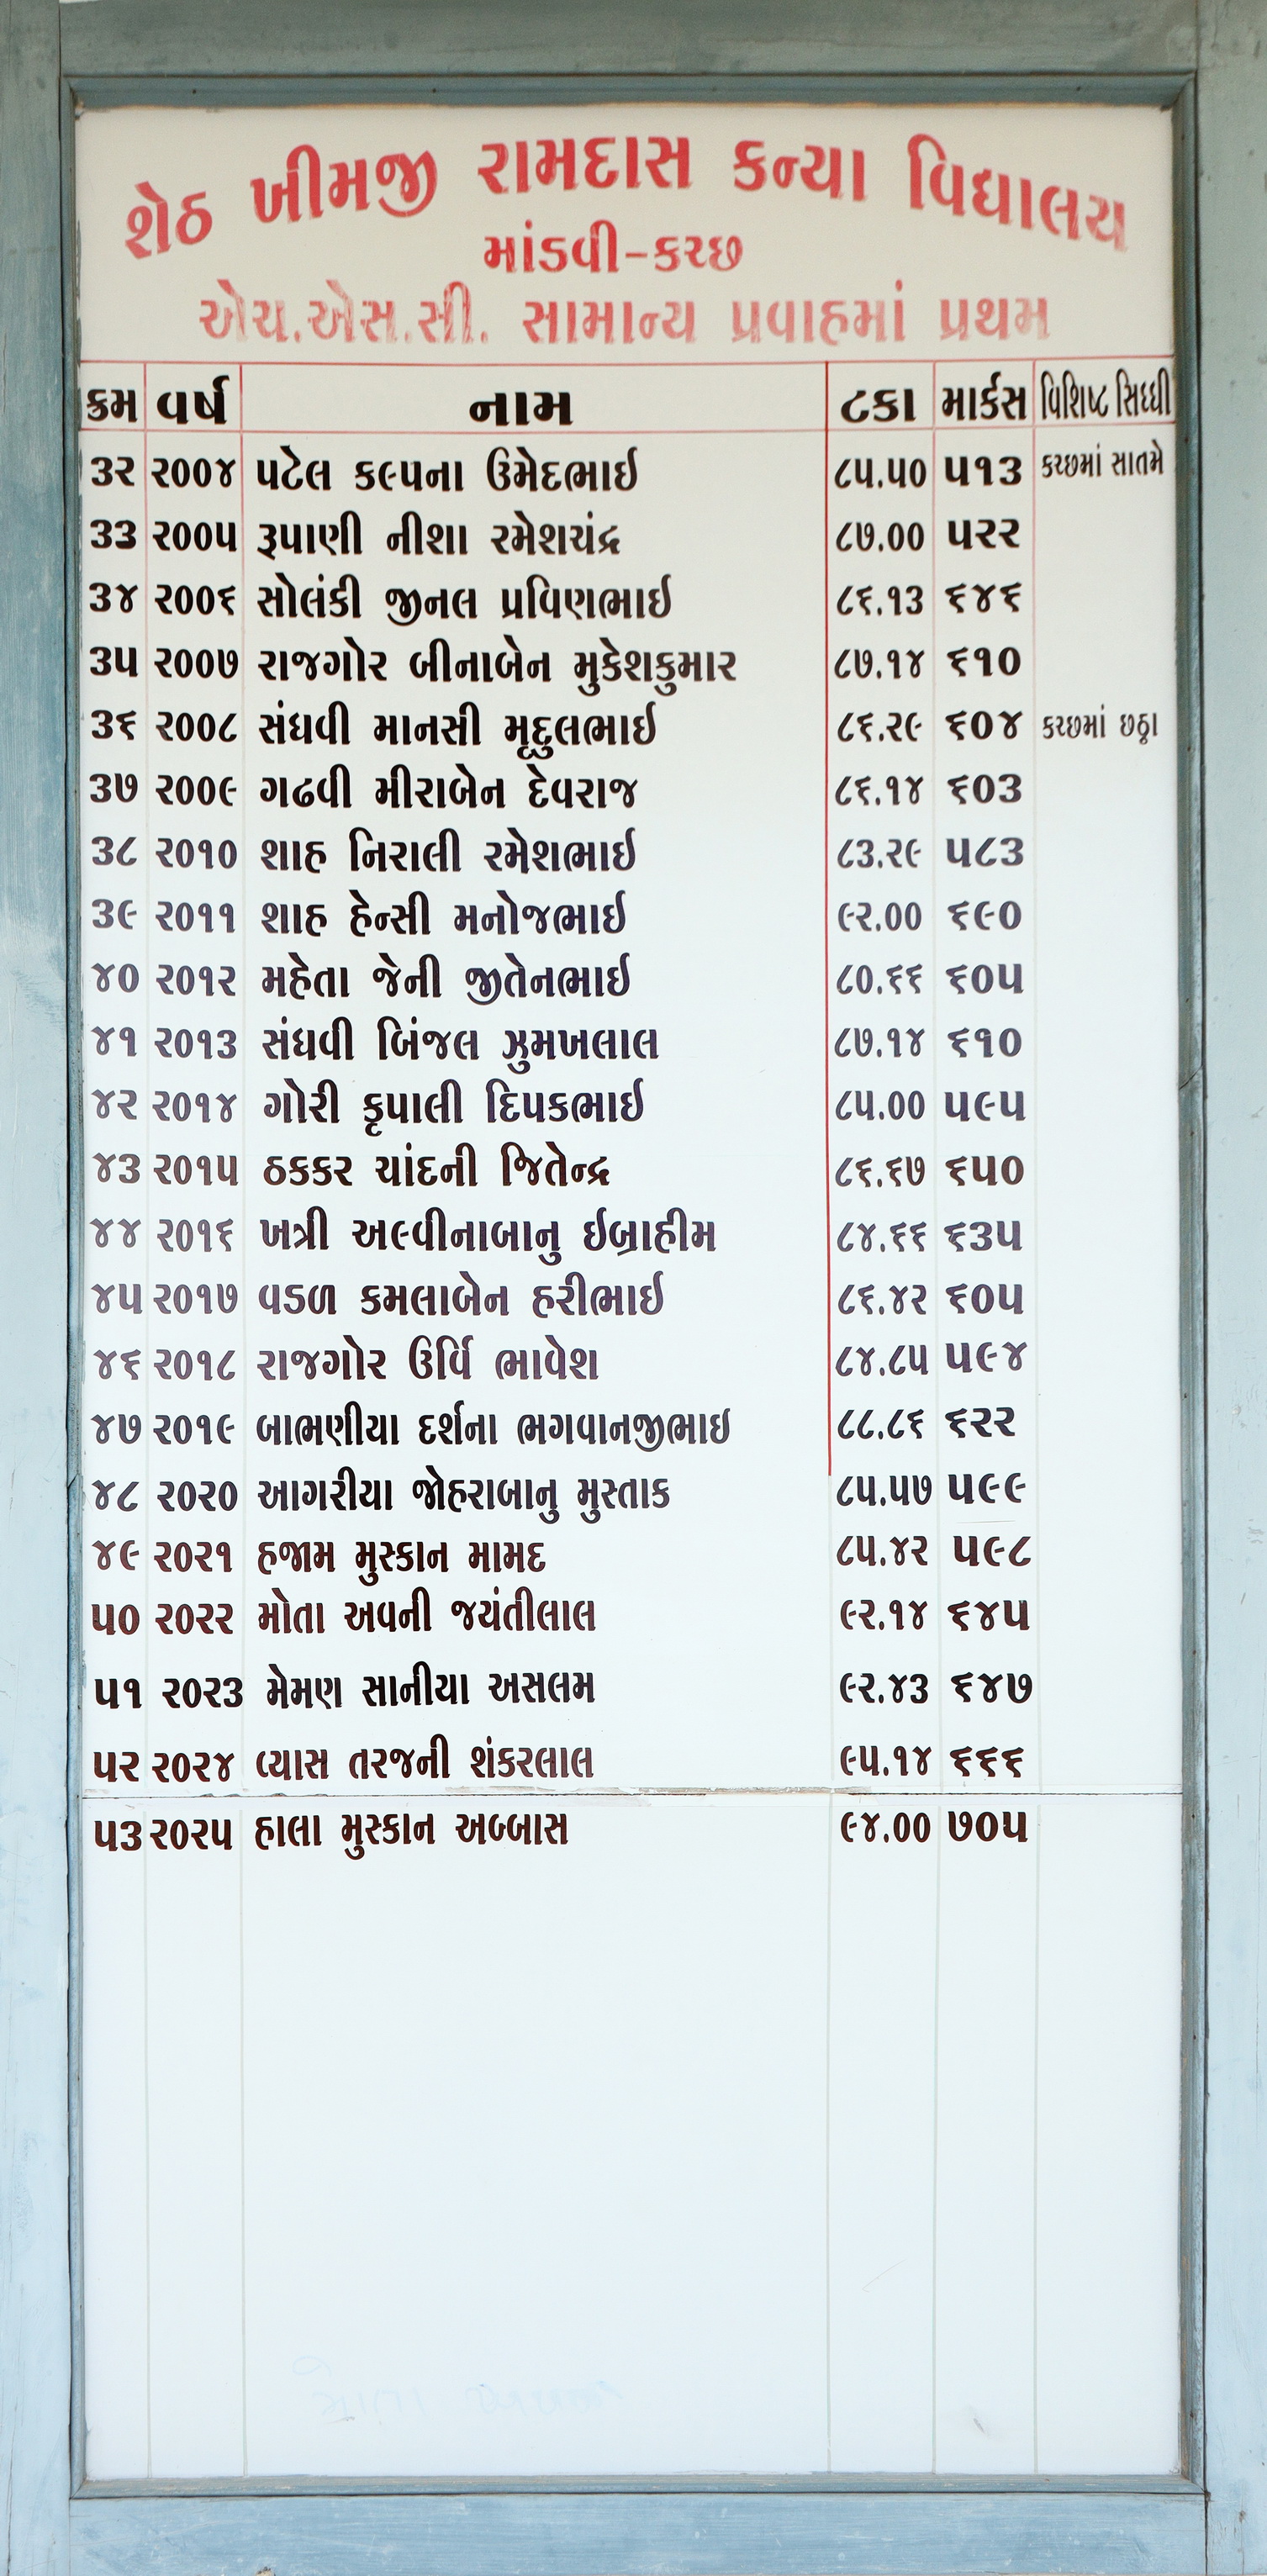 શેઠ ખીમજી રામદાસ કન્યા વિદ્યાલય
માંડવી-કચ્છ
એચ.એસ.સી. સામાન્ય પ્રવાહમાં પ્રથમ
ક્રમ વર્ષ નામ ટકા માર્કસ વિશિષ્ટ સિધ્ધી
૩૨ ૨૦૦૪ પટેલ કલ્પના ઉમેદભાઈ ૮૫.૫૦ ૫૧૩ કચ્છમાં સાતમે
૩૩ ૨૦૦૫ રૂપાણી નીશા રમેશચંદ્ર ૮૭.૦૦ ૫૨૨
૩૪ ૨૦૦૬ સોલંકી જીનલ પ્રવિણભાઈ ૮૬.૧૩ ૬૪૬
૩૫ ૨૦૦૭ રાજગોર બીનાબેન મુકેશકુમાર ૮૭.૧૪ ૬૧૦
૩૬ ૨૦૦૮ સંઘવી માનસી મૃદુલભાઈ ૮૬.૨૯ ૬૦૪ કચ્છમાં છઠ્ઠા
૩૭ ૨૦૦૯ ગઢવી મીરાબેન દેવરાજ ૮૬.૧૪ ૬૦૩
૩૮ ૨૦૧૦ શાહ નિરાલી રમેશભાઈ ૮૩.૨૯ ૫૮૩
૩૯ ૨૦૧૧ શાહ હેન્સી મનોજભાઈ ૯૨.૦૦ ૬૯૦
૪૦ ૨૦૧૨ મહેતા જેની જીતેનભાઈ ૮૦.૬૬ ૬૦૫
૪૧ ૨૦૧૩ સંઘવી બિંજલ ઝુમખલાલ ૮૭.૧૪ ૬૧૦
૪૨ ૨૦૧૪ ગોરી કૃપાલી દિપકભાઈ ૮૫.૦૦ ૫૯૫
૪૩ ૨૦૧૫ ઠકકર ચાંદની જિતેન્દ્ર ૮૬.૬૭ ૬૫૦
૪૪ ૨૦૧૬ ખત્રી અલ્વીનાબાનુ ઈબ્રાહીમ ૮૪.૬૬ ૬૩૫
૪૫ ૨૦૧૭ વડળ કમલાબેન હરીભાઈ ૮૬.૪૨ ૬૦૫
૪૬ ૨૦૧૮ રાજગોર ઉર્વિ ભાવેશ ૮૪.૮૫ ૫૯૪
૪૭ ૨૦૧૯ બાભણીયા દર્શના ભગવાનજીભાઇ ૮૮.૮૬ ૬૨૨
૪૮ ૨૦૨૦ આગરીયા જોહરાબાનુ મુસ્તાક ૮૫.૫૭ ૫૯૯
૪૯ ૨૦૨૧ હજામ મુસ્કાન મામદ ૮૫.૪૨ ૫૯૮
૫૦ ૨૦૨૨ મોતા અવની જયંતીલાલ ૯૨.૧૪ ૬૪૫
૫૧ ૨૦૨૩ મેમણ સાનીયા અસલમ ૯૨.૪૩ ૬૪૭
૫૨ ૨૦૨૪ વ્યાસ તરજની શંકરલાલ ૯૫.૧૪ ૬૬૬
૫૩ ૨૦૨૫ હાલા મુસ્કાન અબ્બાસ ૯૪.૦૦ ૭૦૫